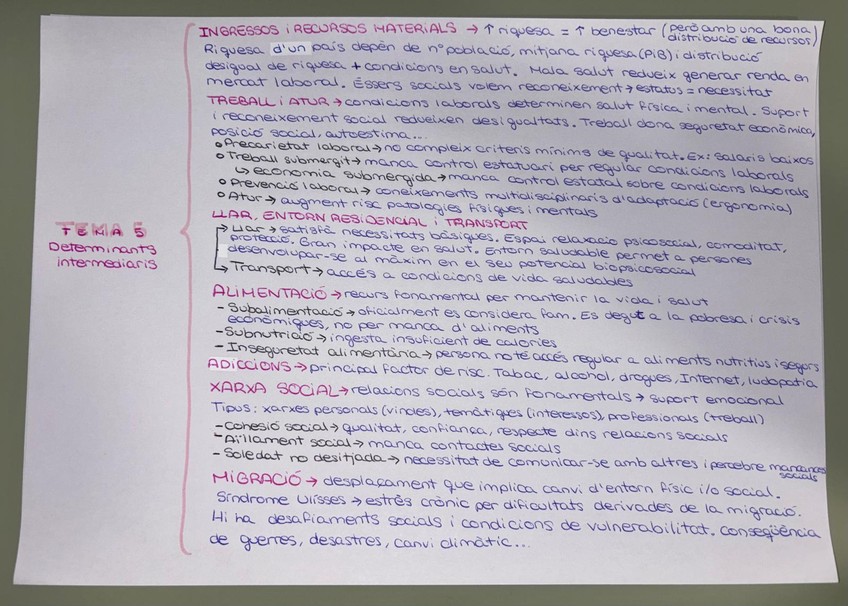 TEMA 5
Determinants
intermediaris
INGRESSOS i RECURSOS MATERIALS → ↑ riquesa = ↑ benestar (però amb una bona
distribució de recursos)
Riquesa d'un país depèn de nº població, mitjana riquesa (PiB) i distribució
desigual de riquesa + condicions en salut. Mala salut redueix generar renda en
mercat laboral. Éssers socials volem reconeixement → estatus = necessitat
TREBALL i ATUR → condicions laborals determinen salut física i mental. Suport
i reconeixement social redueixen desigualtats. Treball dona seguretat econòmica,
posició social, autoestima...
Precarietat laboral → no compleix criteris mínims de qualitat. Ex: salaris baixos
Treball submergit → manca control estatuari per regular condicions laborals
↳ economia submergida → manca control estatal sobre condicions laborals
Prevenció laboral → coneixements multidisciplinaris d'adaptació (ergonomia)
Atur → augment risc patologies físiques i mentals
LLAR, ENTORN RESIDENCIAL i TRANSPORT
→ Llar → satisfà necessitats bàsiques. Espai relaxació psicosocial, comoditat,
protecció. Gran impacte en salut. Entorn saludable permet a persones
desenvolupar-se al màxim en el seu potencial biopsicosocial
→ Transport → accés a condicions de vida saludables
ALIMENTACIÓ → recurs fonamental per mantenir la vida i salut
- Subalimentació → oficialment es considera fam. Es degut a la pobresa i crisis
econòmiques, no per manca d'aliments
- Subnutrició → ingesta insuficient de calories
- Inseguretat alimentària → persona no té accés regular a aliments nutritius i segurs
ADICCIONS → principal factor de risc. Tabac, alcohol, drogues, Internet, ludopatia
XARXA SOCIAL → relacions socials són fonamentals → suport emocional
Tipus: xarxes personals (vincles), temàtiques (interessos), professionals (treball)
- Cohesió social → qualitat, confiança, respecte dins relacions socials
- Aïllament social → manca contactes socials
- Soledat no desitjada → necessitat de comunicar-se amb altres i percebre mancances
socials
MIGRACIÓ → desplaçament que implica canvi d'entorn físic i/o social.
Síndrome Ulisses → estrès crònic per dificultats derivades de la migració.
Hi ha desafiaments socials i condicions de vulnerabilitat. Conseqüència
de guerres, desastres, canvi climàtic...